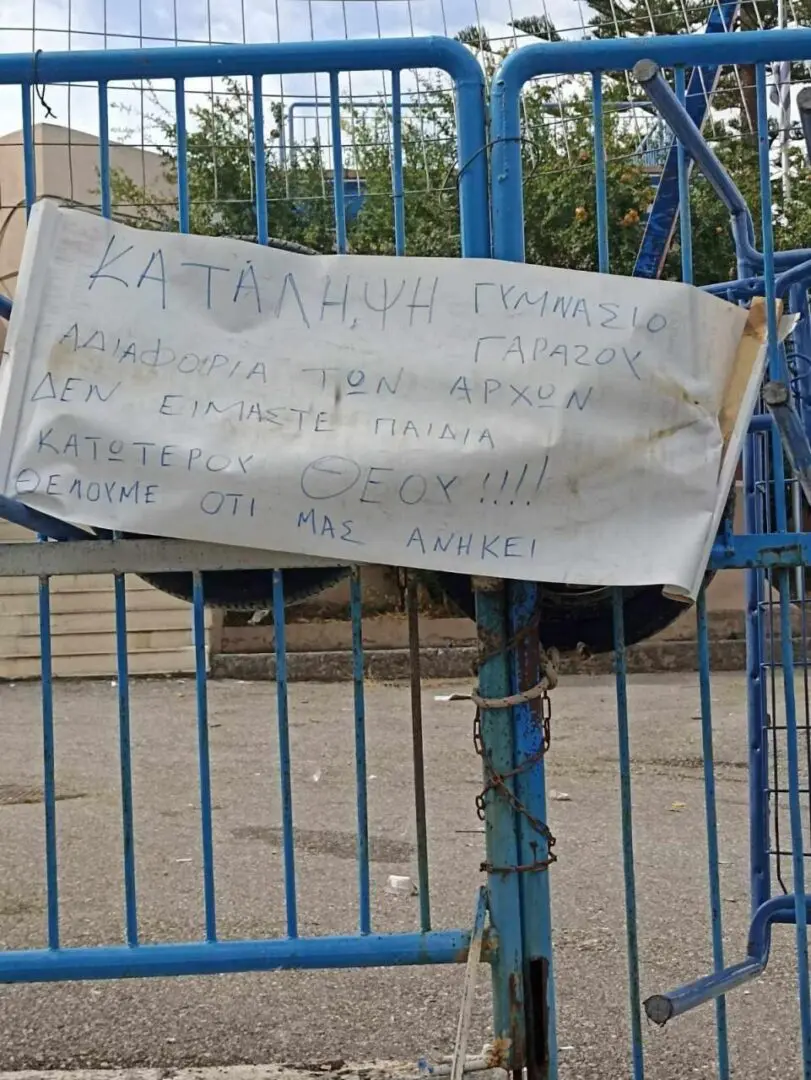 ΚΑΤΑΛΗ,ΨΗ ΓΥΜΝΑΣΙΟ
ΓΑΡΑΖΟΥ
ΑΔΙΑΦΟΡΙΑ ΤΩΝ ΑΡΧΩΝ
ΔΕΝ ΕΙΜΑΣΤΕ ΠΑΙΔΙΑ
ΚΑΤΩΤΕΡΟΥ ΘΕΟΥ!!!!
ΘΕΛΟΥΜΕ ΟΤΙ ΜΑΣ ΑΝΗΚΕΙ